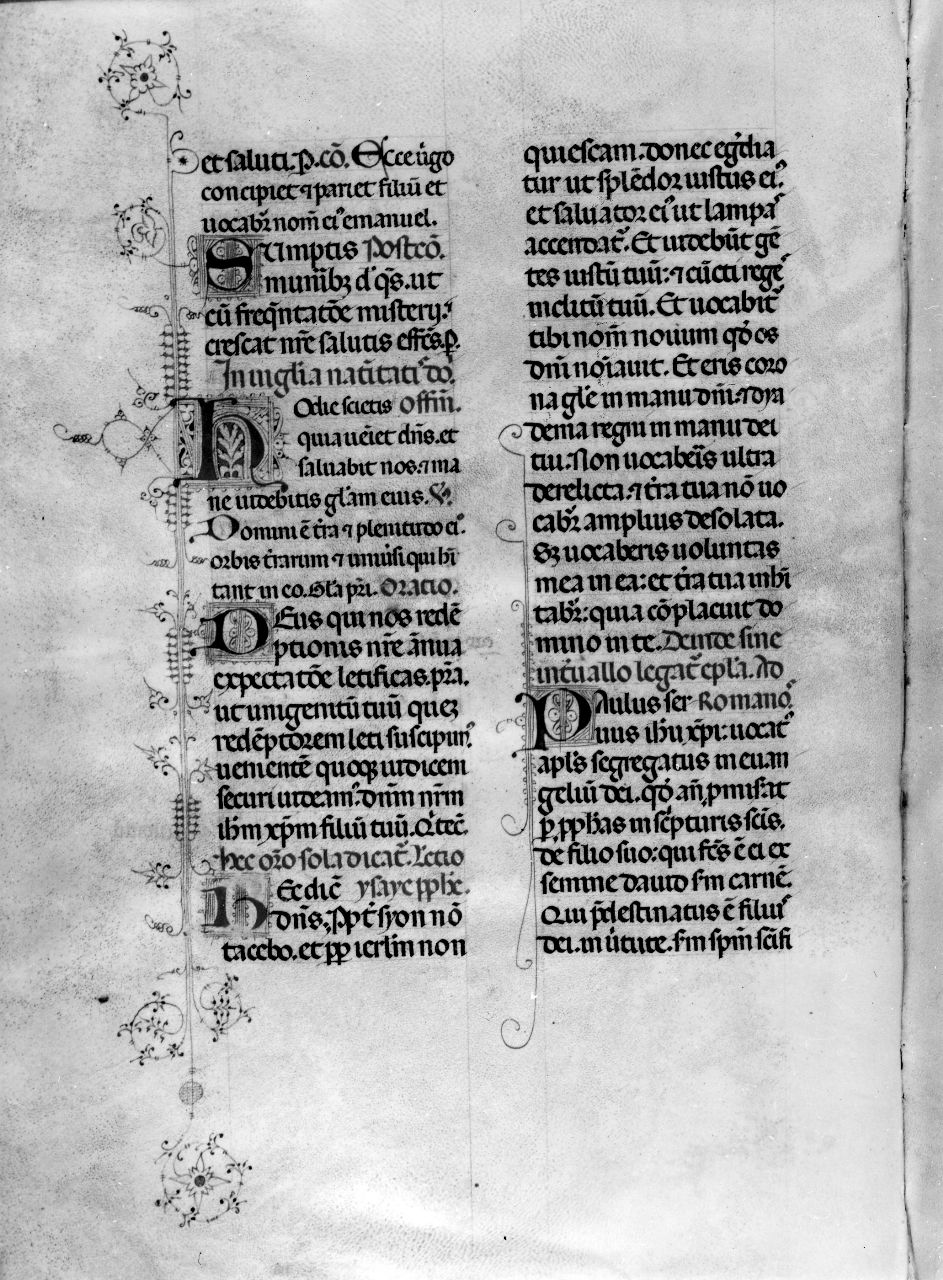 et saluti. P. cō. Ecce ūgo
concipiet ⁊ pariet filiū et
uocabr̄ nom̄ eiꝰ emanuel.
Sumptis Postcō.
munib̄ꝫ d' q̄s. ut
cū freq̄ntatōe misterij:
crescat nr̄e salutis effēs. ꝑ.
In uiglia natītatiſ dō.
Hodie scietis Offm̄.
quia uēiet dn̄s. et
saluabit nos: ⁊ ma
ne uidebitis gl'am eius. V.
Domini ē t̄ra ⁊ plenitudo eiꝰ
orbis t̄rarum ⁊ uniūsi qui hī
tant in eo. Gl'a pr̄i. Oracio.
Deus qui nos redē
ptionis nr̄e ānua
expectatōe letificas. pr̄a.
ut unigenitū tuū quez
redēptorem leti suscipimꝰ
uenientē quoqꝫ iudicem
securi uideamꝰ. dn̄m nr̄m
ih̄m xp̄m filiū tuū. Q' tec̄.
hec or̄o sola dicat̄. Lectio
Hec dic̄ ysaye pp̄he.
dn̄s. Ppt̄ syon nō
tacebo. et pp̄ ierl'm non
quiescam. donec eḡdia
tur ut splēdor iustus eiꝰ
et saluator eiꝰ ut lampaſ
accendat̄. Et uidebūt gē
tes iustū tuū: ⁊ cūcti regeſ
inclitū tuū. Et uocabit̄
tibi nom̄ nouum qd̄ os
dn̄i noīauit. Et eris coro
na gl'e in manu dn̄i: ⁊ dya
dema regni in manu dei
tui. Non uocaberis ultra
derelicta: ⁊ t̄ra tua nō uo
cabr̄ amplius desolata.
Sꝫ uocaberis uoluntas
mea in ea: et t̄ra tua inhī
tabr̄: quia cōplacuit do
mino in te. Deinde sine
int̄uallo legat̄ epl'a. Ad
Paulus ser Romanoſ
uus ih̄u xp̄i: uocatꝰ
apl's segregatus in euan
gelium dei. qd̄ an̄ ꝓmisat
ꝑ pp̄has in sc̄pturis sc̄is.
de filio suo: qui fc̄s ē ei ex
semine dauid sm̄ carnē.
Qui p̄destinatus ē filiuſ
dei. in ūtute. sm̄ sp̄m sc̄ifi